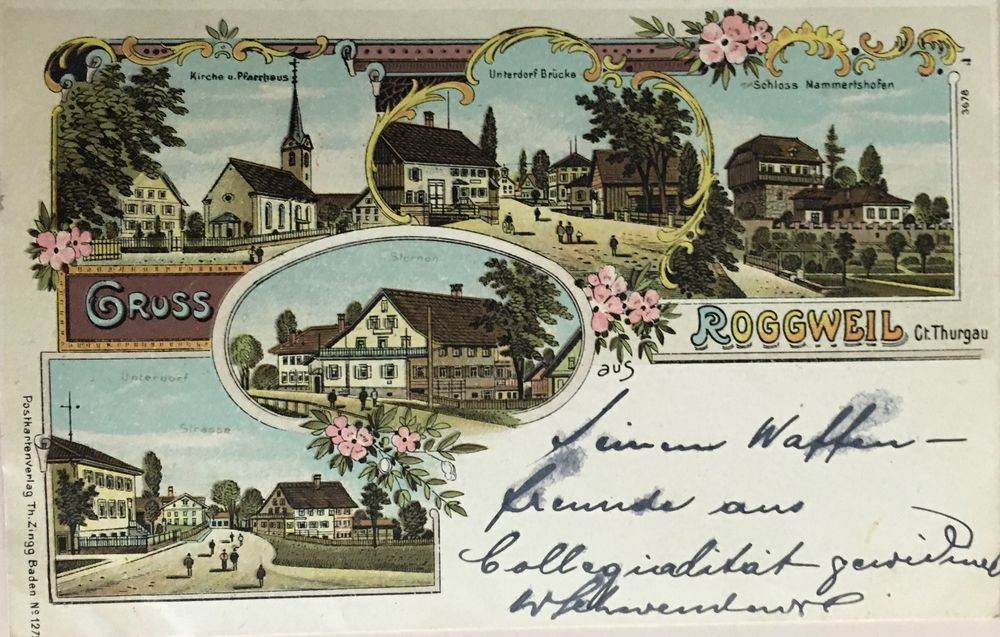 Kirche u. Pfarrhaus
Unterdorf Brücke
Schloss Mammertshofen
3678
Sternen
GRUSS
aus
ROGGWEIL Ct. Thurgau
Unterdorf
Strasse
Postkartenverlag Th. Zingg Baden No 127
seinem Waffen-
freunde aus
Collegialität gewidmet